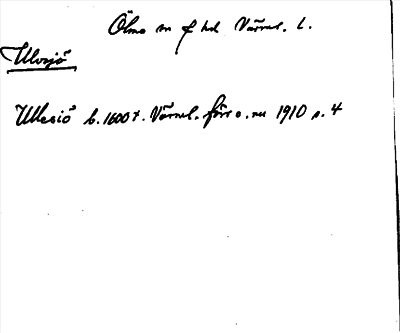 Ölme sn f hd Värml. L.
Ulvsjö
Ullesiö b. 1600 t. Värml. förr o. nu 1910 s. 4